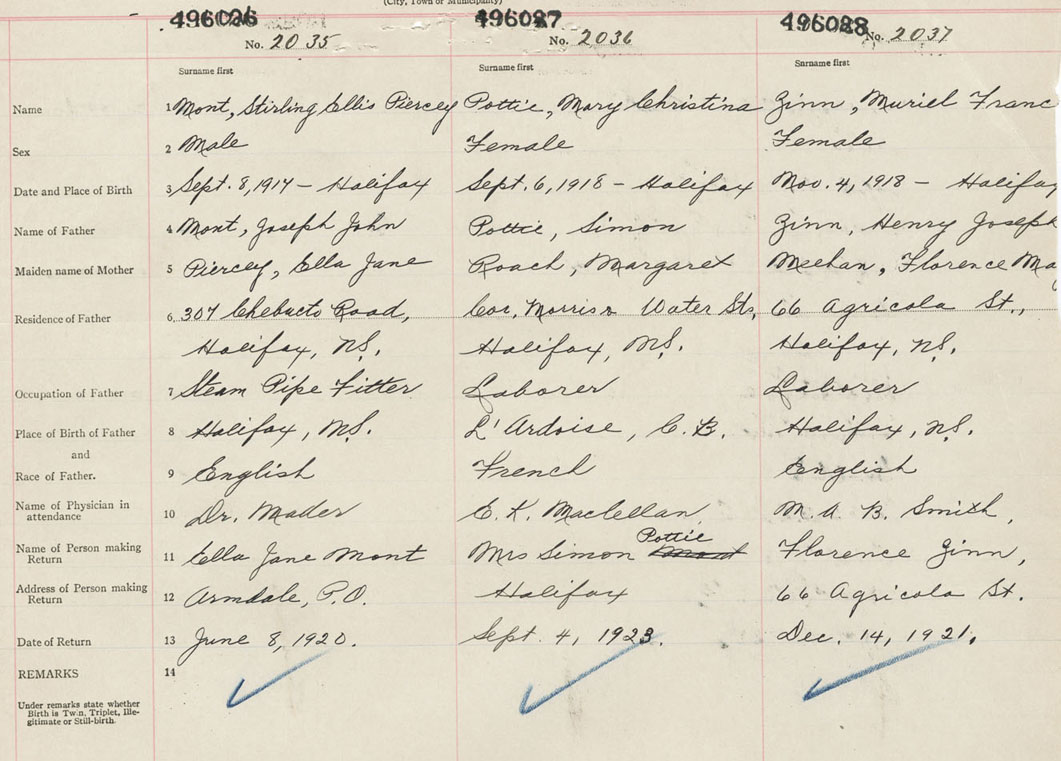 (City, Town or Municipality)
496026 496087 496088
No. 2035 No. 2036 No. 2037
Surname first Surname first Surname first
Name 1 Mont, Stirling Ellis Piercey Pottie, Mary Christina Zinn, Muriel Franc
Sex 2 Male Female Female
Date and Place of Birth 3 Sept. 8, 1917 – Halifax Sept. 6, 1918 – Halifax Nov. 4, 1918 – Halifax
Name of Father 4 Mont, Joseph John Pottie, Simon Zinn, Henry Joseph
Maiden name of Mother 5 Piercey, Ella Jane Roach, Margaret Meehan, Florence Ma
Residence of Father 6 307 Chebucto Road, Cor. Morris & Water Sts, 66 Agricola St.,
Halifax, N.S. Halifax, N.S. Halifax, N.S.
Occupation of Father 7 Steam Pipe Fitter Laborer Laborer
Place of Birth of Father 8 Halifax, N.S. L'Ardoise, C.B. Halifax, N.S.
and
Race of Father. 9 English French English
Name of Physician in attendance 10 Dr. Mader E. K. Maclellan, M. A. B. Smith,
Name of Person making Return 11 Ella Jane Mont Mrs Simon Pottie Florence Zinn,
Address of Person making Return 12 Armdale, P.O. Halifax 66 Agricola St.
Date of Return 13 June 8, 1920. Sept. 4, 1923. Dec. 14, 1921.
REMARKS 14
Under remarks state whether
Birth is Twin, Triplet, Ille-
gitimate or Still-birth.